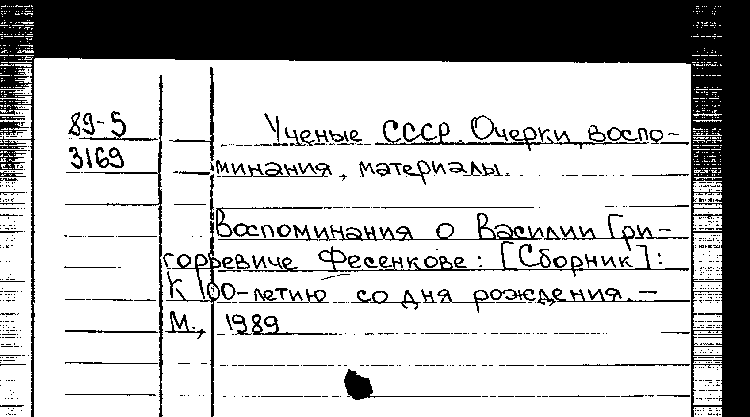 89-5
3169
Ученые СССР. Очерки, воспо-
минания, материалы.
Воспоминания о Василии Гри-
горьевиче Фесенкове: [Сборник]:
К 100-летию со дня рождения. –
М., 1989